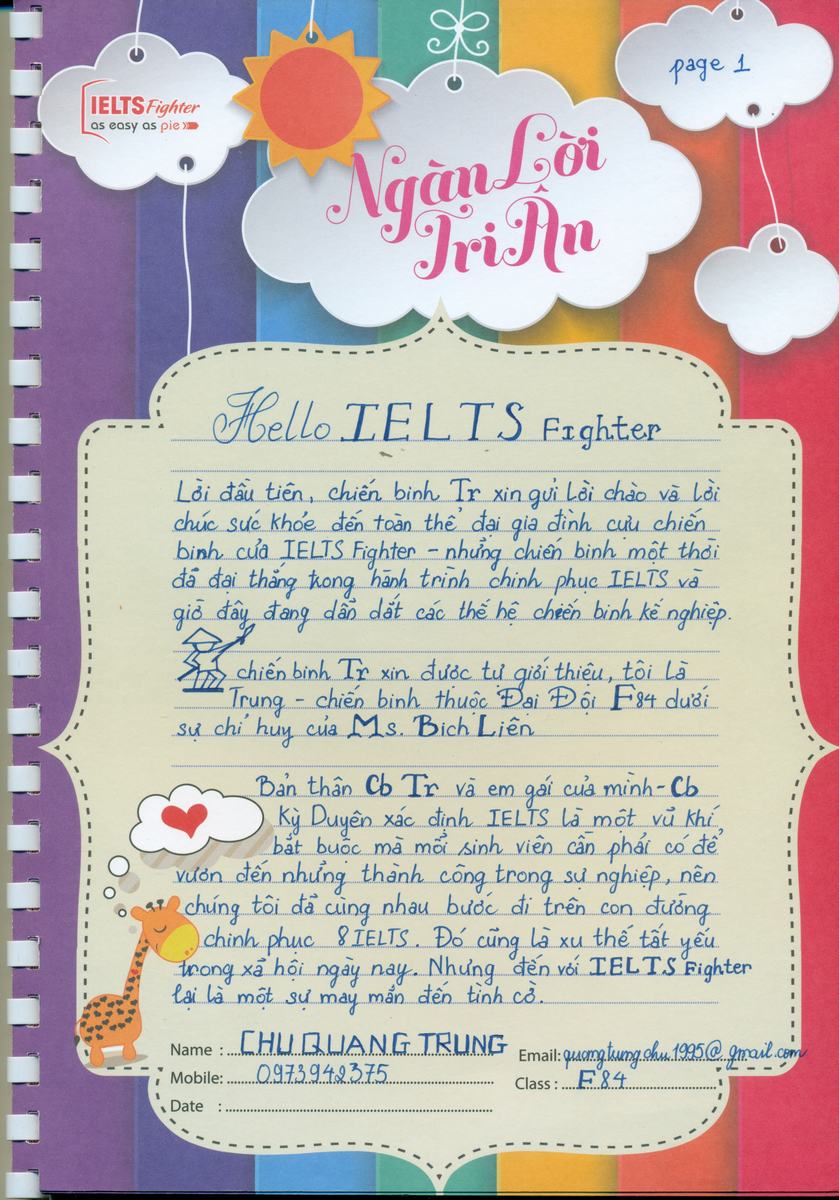 page 1
IELTS Fighter
as easy as pie
Ngàn Lời
Tri Ân
Hello IELTS Fighter
Lời đầu tiên, chiến binh Tr xin gửi lời chào và lời
chúc sức khỏe đến toàn thể đại gia đình cựu chiến
binh của IELTS Fighter - những chiến binh một thời
đã đại thắng trong hành trình chinh phục IELTS và
giờ đây đang dẫn dắt các thế hệ chiến binh kế nghiệp.
chiến binh Tr xin được tự giới thiệu, tôi là
Trung - chiến binh thuộc Đại Đội F84 dưới
sự chỉ huy của Ms. Bích Liên
Bản thân Cb Tr và em gái của mình - Cb
Kỳ Duyên xác định IELTS là một vũ khí
bắt buộc mà mỗi sinh viên cần phải có để
vươn đến những thành công trong sự nghiệp, nên
chúng tôi đã cùng nhau bước đi trên con đường
chinh phục 8 IELTS. Đó cũng là xu thế tất yếu
trong xã hội ngày nay. Nhưng đến với IELTS Fighter
lại là một sự may mắn đến tình cờ.
Name : CHU QUANG TRUNG
Email: quangtrungchu1995@gmail.com
Mobile: 0973942375
Class : F84
Date :